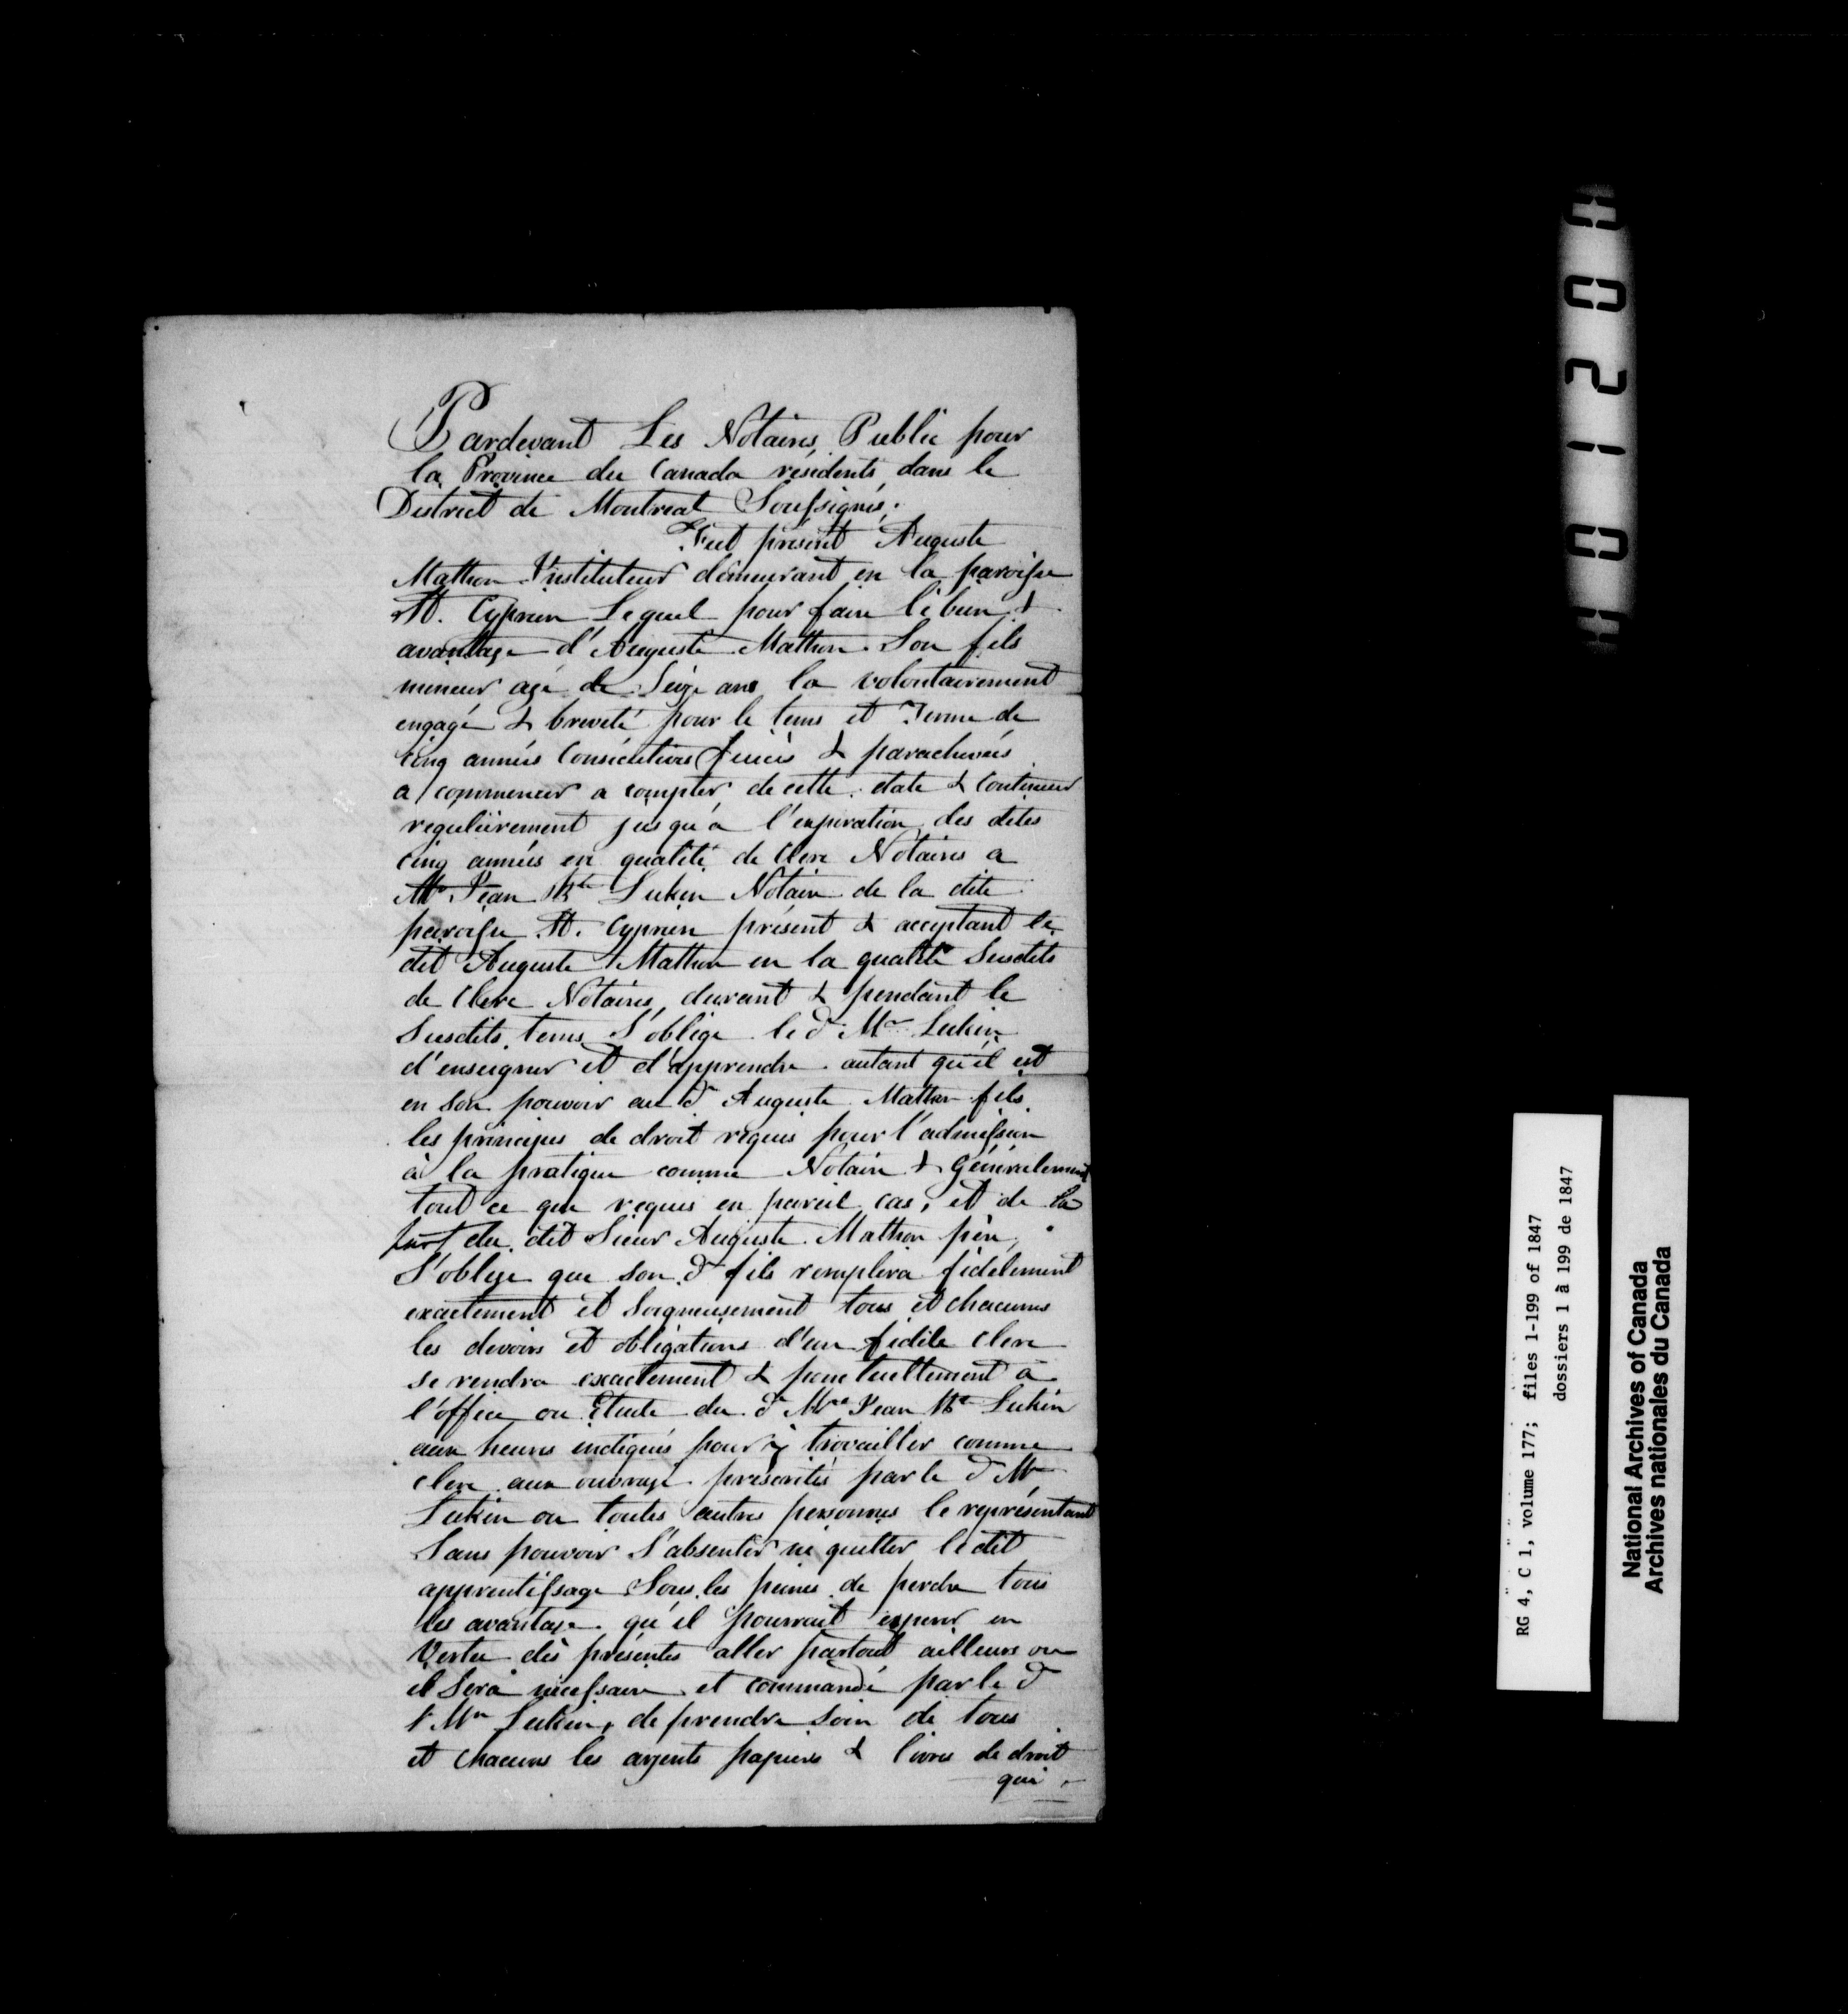 Pardevant Les Notaires, Public pour
la Province du Canada résidents dans le
District de Montreal Soussignés;
Fut présent Auguste
Mathon Instituteur demeurant en la paroisse
St. Cyprien Lequel pour faire le bien &
avantage d'Auguste Mathon Son fils
mineur agé de Seize ans la volontairement
engagé & breveté pour le tems et Terme de
cinq années Consécutives finies & parachevées
a commencer a compter de cette date & Continuer
regulièrement jusqu'a l'expiration des dites
cinq années en qualité de Clerc Notaires a
Mre Jean Bte Lukin Notaire de la dite
paroisse St. Cyprien présent & acceptant le
dit Auguste Mathon en la qualité Susdits
de Clerc Notaires, durant & pendant le
Susdits tems S'oblige le dt Mre Lukin
d'enseigner et d'apprendre autant qu'il est
en Son pouvoir au dt Auguste Mathon fils
les principes de droit réquis pour l'admission
à la pratique comme Notaire & Généralement
tout ce que requis en pareil cas; et de la
part du dit Sieur Auguste Mathon père,
S'oblige que son dt fils remplira fidèlement
exactement et Soigneusement tous et chacunes
les devoirs et obligations d'un fidèle Clerc
se rendra exactement & ponctuellement à
l'office ou Etude du dt Mre Jean Bte Lukin
aux heures indiqués pour y travailler comme
Clerc aux ouvrage présentés par le dt Mre
Lukin ou toutes autres personnes le représentant
Sans pouvoir S'absenter ni quitter ledit
apprentissage Sous les peines de perdre tous
les avantage qu'il pourrait esperer en
Vertu des présentes aller partout ailleurs ou
il Sera nécessaire et commandé par le dt
Mre Lukin, de prendre Soin de tous
et chacuns les argents papiers & livres de droit
qui
00120
RG 4, C 1, volume 177; files 1-199 of 1847
dossiers 1 à 199 de 1847
National Archives of Canada
Archives nationales du Canada